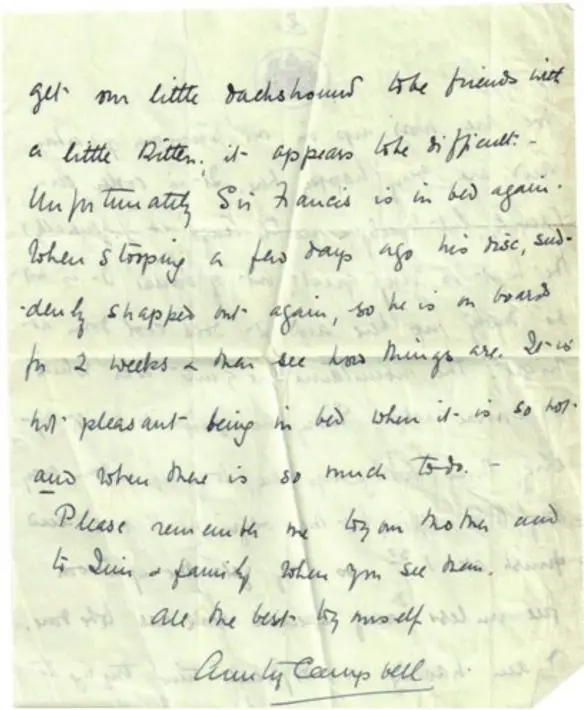 get our little dachshound to be friends with
a little kitten; it appears to be difficult. -
Unfortunately Sir Francis is in bed again.
When stooping a few days ago his disc, sud-
-denly snapped out again, so he is on board
for 2 weeks & then see how things are. It is
not pleasant being in bed when it is so hot
and when there is so much to do. -
Please remember me to your mother and
to & family when you see them.
All the best to yourself
Campbell